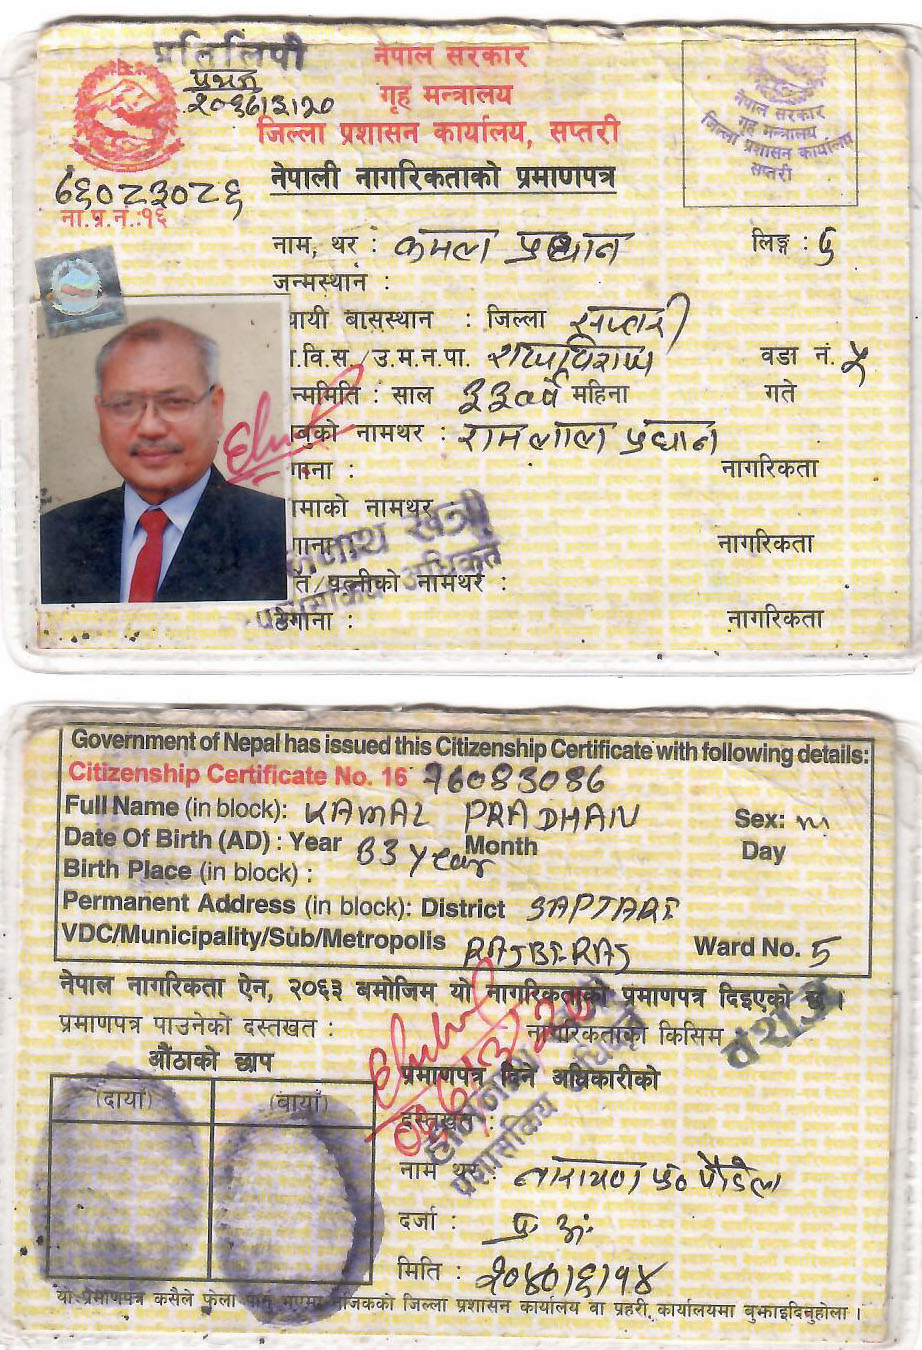 प्रतिलिपी
प्रथम
२०६६।३।२०
नेपाल सरकार
गृह मन्त्रालय
जिल्ला प्रशासन कार्यालय, सप्तरी
नेपाल सरकार
गृह मन्त्रालय
जिल्ला प्रशासन कार्यालय
सप्तरी
नेपाली नागरिकताको प्रमाणपत्र
७६०८३०८६
ना.प्र.नं.:१६
नाम, थर : कमल प्रधान लिङ्ग : पु
जन्मस्थान :
थायी बासस्थान : जिल्ला सप्तरी
ा.वि.स./उ.म.न.पा. राजविराज वडा नं. ५
न्ममिति : साल ३३ वर्ष महिना गते
बुको नामथर : रामलाल प्रधान
गाना : नागरिकता
माको नामथर
गाना : नागरिकता
ति/पत्नीको नामथर :
ठेगाना : नागरिकता
खत्री
अधिकृत
Government of Nepal has issued this Citizenship Certificate with following details:
Citizenship Certificate No. 16 76083086
Full Name (in block): KAMAL PRADHAN Sex: m
Date Of Birth (AD) : Year 33 year Month Day
Birth Place (in block) :
Permanent Address (in block): District SAPTARI
VDC/Municipality/Sub/Metropolis RAJBIRAJ Ward No. 5
नेपाल नागरिकता ऐन, २०६३ बमोजिम यो नागरिकताको प्रमाणपत्र दिइएको छ ।
प्रमाणपत्र पाउनेको दस्तखत : नागरिकताको किसिम वंशज
औंठाको छाप
(दायाँ) (बायाँ)
प्रमाणपत्र दिने अधिकारीको
दस्तखत :
नाम थर : नारायण प्र० पौडेल
दर्जा : प्र. अ.
मिति : २०४०।६।१४
प्रशासकिय
यो प्रमाणपत्र कसैले फेला पारे नजिकको जिल्ला प्रशासन कार्यालय वा प्रहरी कार्यालयमा बुझाइदिनुहोला ।